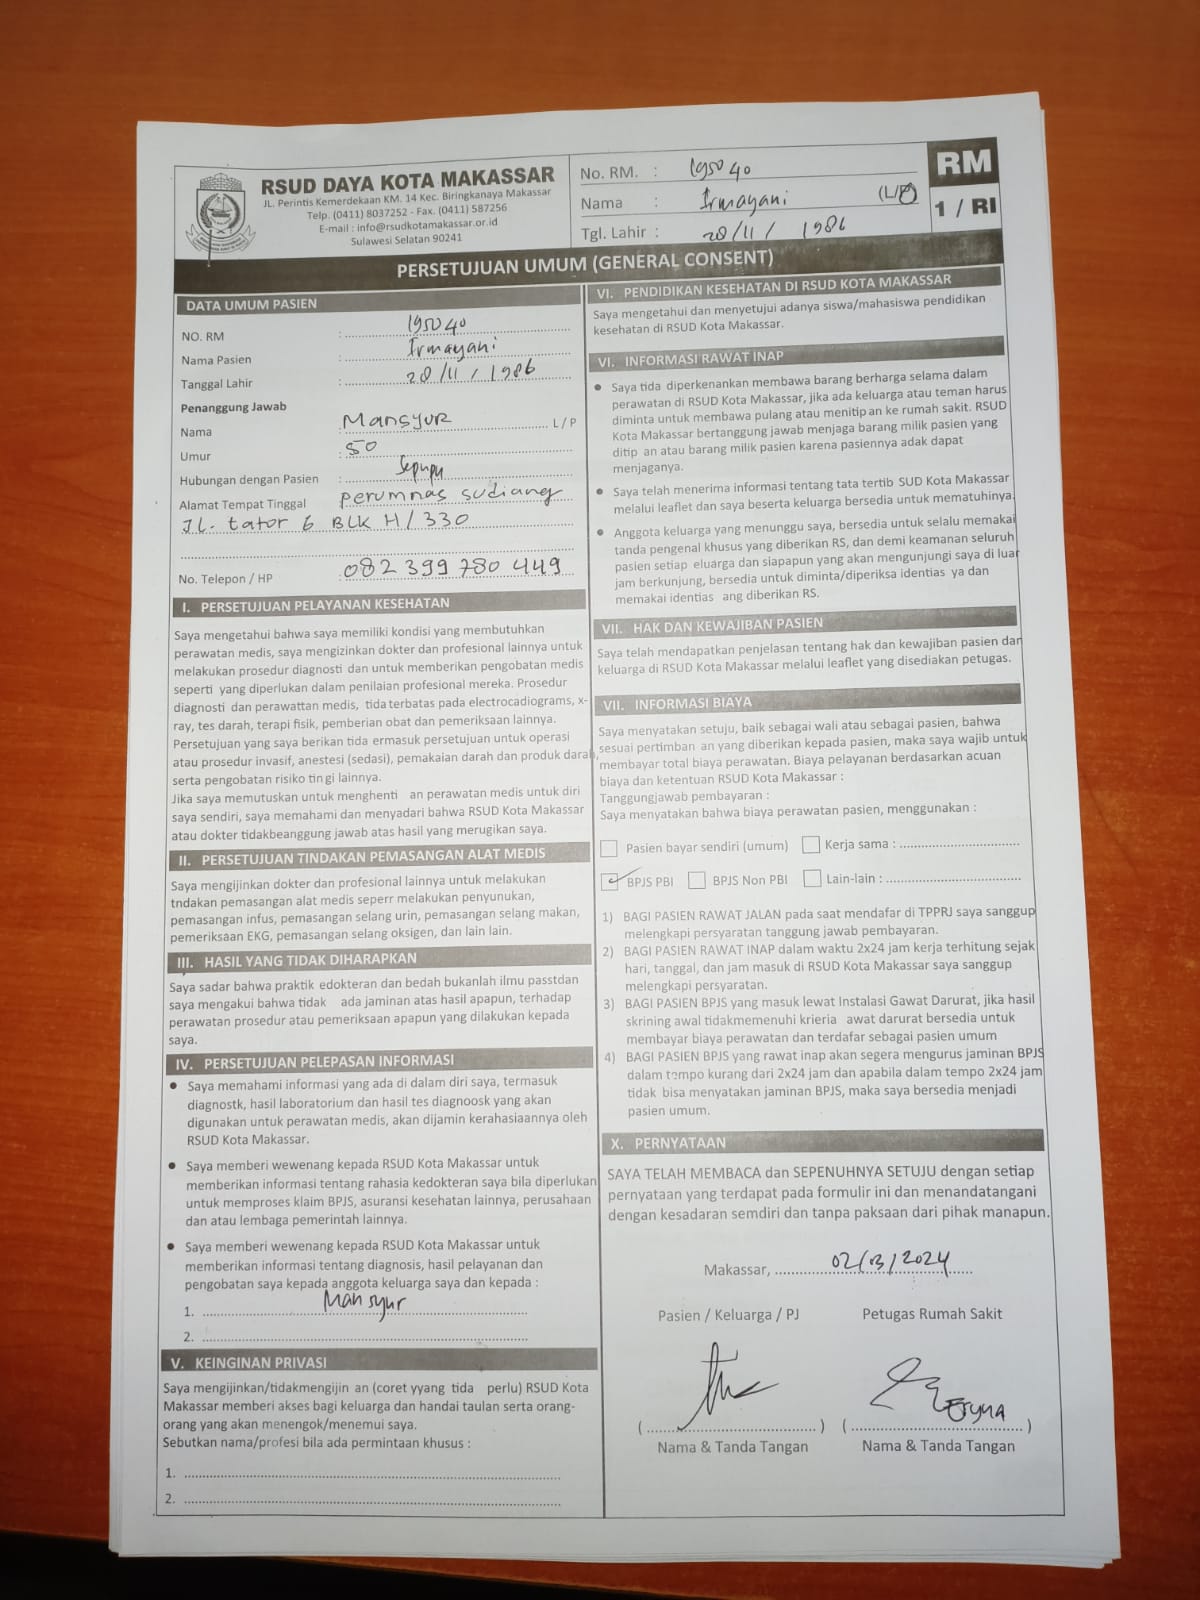 RSUD DAYA KOTA MAKASSAR
JL. Perintis Kemerdekaan KM. 14 Kec. Biringkanaya Makassar
Telp. (0411) 8037252 - Fax. (0411) 587256
E-mail : info@rsudkotamakassar.or.id
Sulawesi Selatan 90241
No. RM. : 195040
Nama : Irmayani (L/P)
Tgl. Lahir : 28/11/ 1986
RM
1 / RI
PERSETUJUAN UMUM (GENERAL CONSENT)
DATA UMUM PASIEN
NO. RM : 195040
Nama Pasien : Irmayani
Tanggal Lahir : 28/11/1986
Penanggung Jawab
Nama : Mansyur L / P
Umur : 50
Hubungan dengan Pasien : Sepupu
Alamat Tempat Tinggal : perumnas sudiang
JL. tator 6 BLK H/330
No. Telepon / HP : 082 399 780 449
I. PERSETUJUAN PELAYANAN KESEHATAN
Saya mengetahui bahwa saya memiliki kondisi yang membutuhkan
perawatan medis, saya mengizinkan dokter dan profesional lainnya untuk
melakukan prosedur diagnosti dan untuk memberikan pengobatan medis
seperti yang diperlukan dalam penilaian profesional mereka. Prosedur
diagnosti dan perawattan medis, tida terbatas pada electrocadiograms, x-
ray, tes darah, terapi fisik, pemberian obat dan pemeriksaan lainnya.
Persetujuan yang saya berikan tida ermasuk persetujuan untuk operasi
atau prosedur invasif, anestesi (sedasi), pemakaian darah dan produk darah,
serta pengobatan risiko tin gi lainnya.
Jika saya memutuskan untuk menghenti an perawatan medis untuk diri
saya sendiri, saya memahami dan menyadari bahwa RSUD Kota Makassar
atau dokter tidakbeanggung jawab atas hasil yang merugikan saya.
II. PERSETUJUAN TINDAKAN PEMASANGAN ALAT MEDIS
Saya mengijinkan dokter dan profesional lainnya untuk melakukan
tndakan pemasangan alat medis seperr melakukan penyunukan,
pemasangan infus, pemasangan selang urin, pemasangan selang makan,
pemeriksaan EKG, pemasangan selang oksigen, dan lain lain.
III. HASIL YANG TIDAK DIHARAPKAN
Saya sadar bahwa praktik edokteran dan bedah bukanlah ilmu passtdan
saya mengakui bahwa tidak ada jaminan atas hasil apapun, terhadap
perawatan prosedur atau pemeriksaan apapun yang dilakukan kepada
saya.
IV. PERSETUJUAN PELEPASAN INFORMASI
• Saya memahami informasi yang ada di dalam diri saya, termasuk
diagnostk, hasil laboratorium dan hasil tes diagnoosk yang akan
digunakan untuk perawatan medis, akan dijamin kerahasiaannya oleh
RSUD Kota Makassar.
• Saya memberi wewenang kepada RSUD Kota Makassar untuk
memberikan informasi tentang rahasia kedokteran saya bila diperlukan
untuk memproses klaim BPJS, asuransi kesehatan lainnya, perusahaan
dan atau lembaga pemerintah lainnya.
• Saya memberi wewenang kepada RSUD Kota Makassar untuk
memberikan informasi tentang diagnosis, hasil pelayanan dan
pengobatan saya kepada anggota keluarga saya dan kepada :
1. Mansyur
2.
V. KEINGINAN PRIVASI
Saya mengijinkan/tidakmengijin an (coret yyang tida perlu) RSUD Kota
Makassar memberi akses bagi keluarga dan handai taulan serta orang-
orang yang akan menengok/menemui saya.
Sebutkan nama/profesi bila ada permintaan khusus :
1.
2.
VI. PENDIDIKAN KESEHATAN DI RSUD KOTA MAKASSAR
Saya mengetahui dan menyetujui adanya siswa/mahasiswa pendidikan
kesehatan di RSUD Kota Makassar.
VI. INFORMASI RAWAT INAP
• Saya tida diperkenankan membawa barang berharga selama dalam
perawatan di RSUD Kota Makassar, jika ada keluarga atau teman harus
diminta untuk membawa pulang atau menitip an ke rumah sakit. RSUD
Kota Makassar bertanggung jawab menjaga barang milik pasien yang
ditip an atau barang milik pasien karena pasiennya adak dapat
menjaganya.
• Saya telah menerima informasi tentang tata tertib SUD Kota Makassar
melalui leaflet dan saya beserta keluarga bersedia untuk mematuhinya.
• Anggota keluarga yang menunggu saya, bersedia untuk selalu memakai
tanda pengenal khusus yang diberikan RS, dan demi keamanan seluruh
pasien setiap eluarga dan siapapun yang akan mengunjungi saya di luar
jam berkunjung, bersedia untuk diminta/diperiksa identias ya dan
memakai identias ang diberikan RS.
VII. HAK DAN KEWAJIBAN PASIEN
Saya telah mendapatkan penjelasan tentang hak dan kewajiban pasien dan
keluarga di RSUD Kota Makassar melalui leaflet yang disediakan petugas.
VII. INFORMASI BIAYA
Saya menyatakan setuju, baik sebagai wali atau sebagai pasien, bahwa
sesuai pertimban an yang diberikan kepada pasien, maka saya wajib untuk
membayar total biaya perawatan. Biaya pelayanan berdasarkan acuan
biaya dan ketentuan RSUD Kota Makassar :
Tanggungjawab pembayaran :
Saya menyatakan bahwa biaya perawatan pasien, menggunakan :
Pasien bayar sendiri (umum) Kerja sama :
BPJS PBI BPJS Non PBI Lain-lain :
1) BAGI PASIEN RAWAT JALAN pada saat mendafar di TPPRJ saya sanggup
melengkapi persyaratan tanggung jawab pembayaran.
2) BAGI PASIEN RAWAT INAP dalam waktu 2x24 jam kerja terhitung sejak
hari, tanggal, dan jam masuk di RSUD Kota Makassar saya sanggup
melengkapi persyaratan.
3) BAGI PASIEN BPJS yang masuk lewat Instalasi Gawat Darurat, jika hasil
skrining awal tidakmemenuhi krieria awat darurat bersedia untuk
membayar biaya perawatan dan terdafar sebagai pasien umum
4) BAGI PASIEN BPJS yang rawat inap akan segera mengurus jaminan BPJS
dalam tempo kurang dari 2x24 jam dan apabila dalam tempo 2x24 jam
tidak bisa menyatakan jaminan BPJS, maka saya bersedia menjadi
pasien umum.
X. PERNYATAAN
SAYA TELAH MEMBACA dan SEPENUHNYA SETUJU dengan setiap
pernyataan yang terdapat pada formulir ini dan menandatangani
dengan kesadaran semdiri dan tanpa paksaan dari pihak manapun.
Makassar, 02/03/2024
Pasien / Keluarga / PJ Petugas Rumah Sakit
( ) ( )
Nama & Tanda Tangan Nama & Tanda Tangan